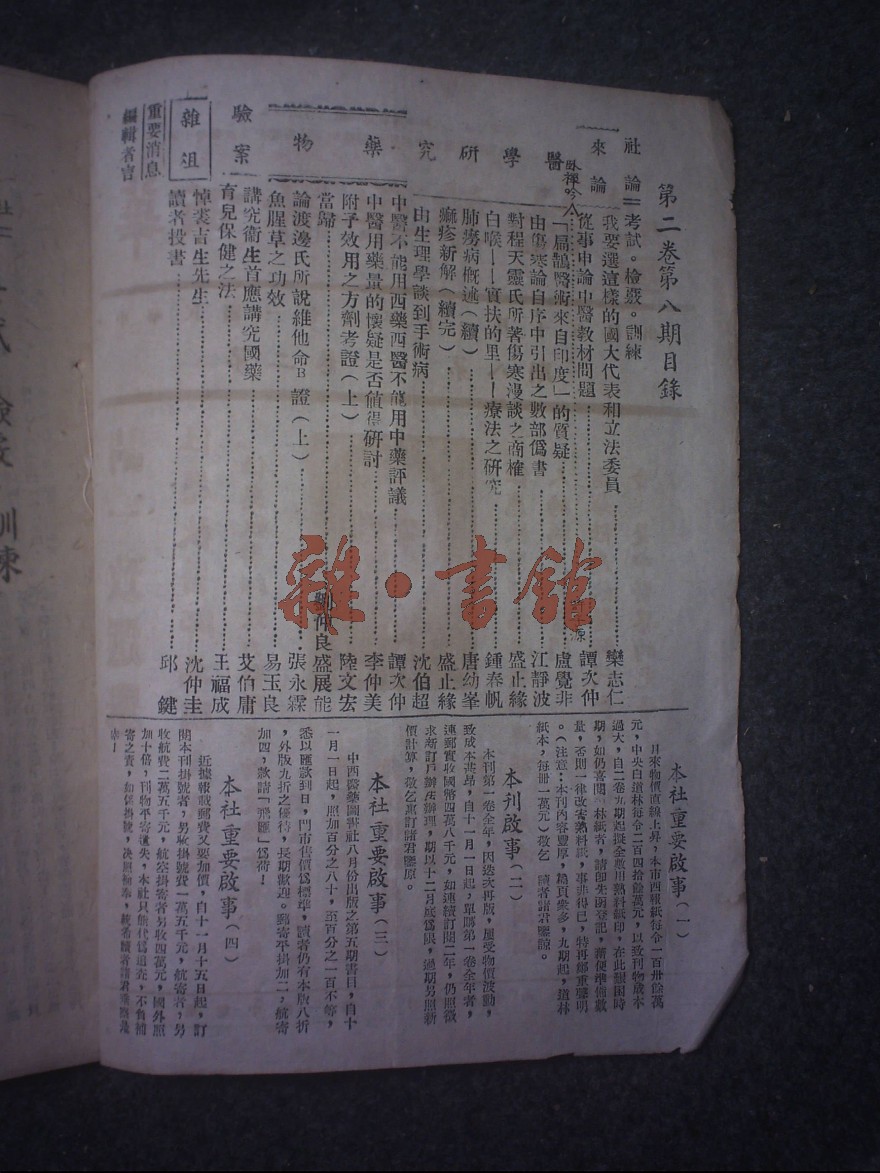 第二卷第八期目錄
社論＝考試。檢覈。訓練
來論
我要選這樣的國大代表和立法委員……欒志仁
從事中論中醫教材問題……譚次仲
醫學研究
「扁鵲醫術來自印度」的質疑……盧覺非
由傷寒論自序中引出之數部僞書……江靜波
對程天靈氏所著傷寒漫談之商榷……盛止緣
白喉——實扶的里——療法之研究……鍾春帆
肺癆病概述（續）……唐幼峯
癍疹新解（續完）……盛止緣
由生理學談到手術病……沈伯超
藥物
中醫不能用西藥西醫不能用中藥評議……譚次仲
中醫用藥量的懷疑是否值得研討……李仲美
附子效用之方劑考證（上）……陸文宏
當歸……劉仲良 盛展能
論渡邊氏所說維他命B證（上）……張永霖
魚腥草之功效……易玉良
驗案
講究衛生首應講究國藥……艾伯庸
育兒保健之法……王福成
雜俎
悼裘吉生先生……沈仲圭
讀者投書……邱鍵
重要消息
編輯者言
本社重要啟事（一）
月來物價直線上昇，本市西報紙每令一百卅餘萬
元，中央白道林每令二百四拾餘萬元，以致刊物成本
過大，自二卷九期起擬全數用熟料紙印，在此艱困時
期，如仍喜閱 林紙者，請即先函登記，藉便準備數
量，否則一律改寄熟料紙，事非得已，特再鄭重聲明
。（注意：本刊內容豐厚，篇頁衆多，九期起，道林
紙本，每冊一萬元）敬乞 讀者諸君鑒諒。
本刊啟事（二）
本刊第一卷全年，因迭次再版，屢受物價波動，
致成本甚昂，自十一月一日起，單購第一卷全年者，
連郵實收國幣四萬八千元，如連續訂閱二年，仍照徵
求新訂戶辦法辦理，期以十二月底爲限，過期另照新
價計算，敬乞惠訂諸君鑒原。
本社重要啟事（三）
中西醫藥圖書社八月份出版之第五期書目，自十
一月一日起，照加百分之八十，至百分之一百不等，
悉以匯款到日，門市售價爲標準，讀者仍有本版八折
，外版九折之優待，長期歡迎。郵寄平掛加二，航寄
加四，款請「飛匯」爲荷！
本社重要啟事（四）
近據報載郵費又要加價，自十一月十五日起，訂
閱本刊掛號者，另收掛號費一萬五千元，航寄者，另
收航費二萬五千元，航空掛寄者另收四萬元，國外照
加十倍，刊物平寄遺失，本社只能代爲追查，不負補
寄之責，如係掛號，
雜·書館